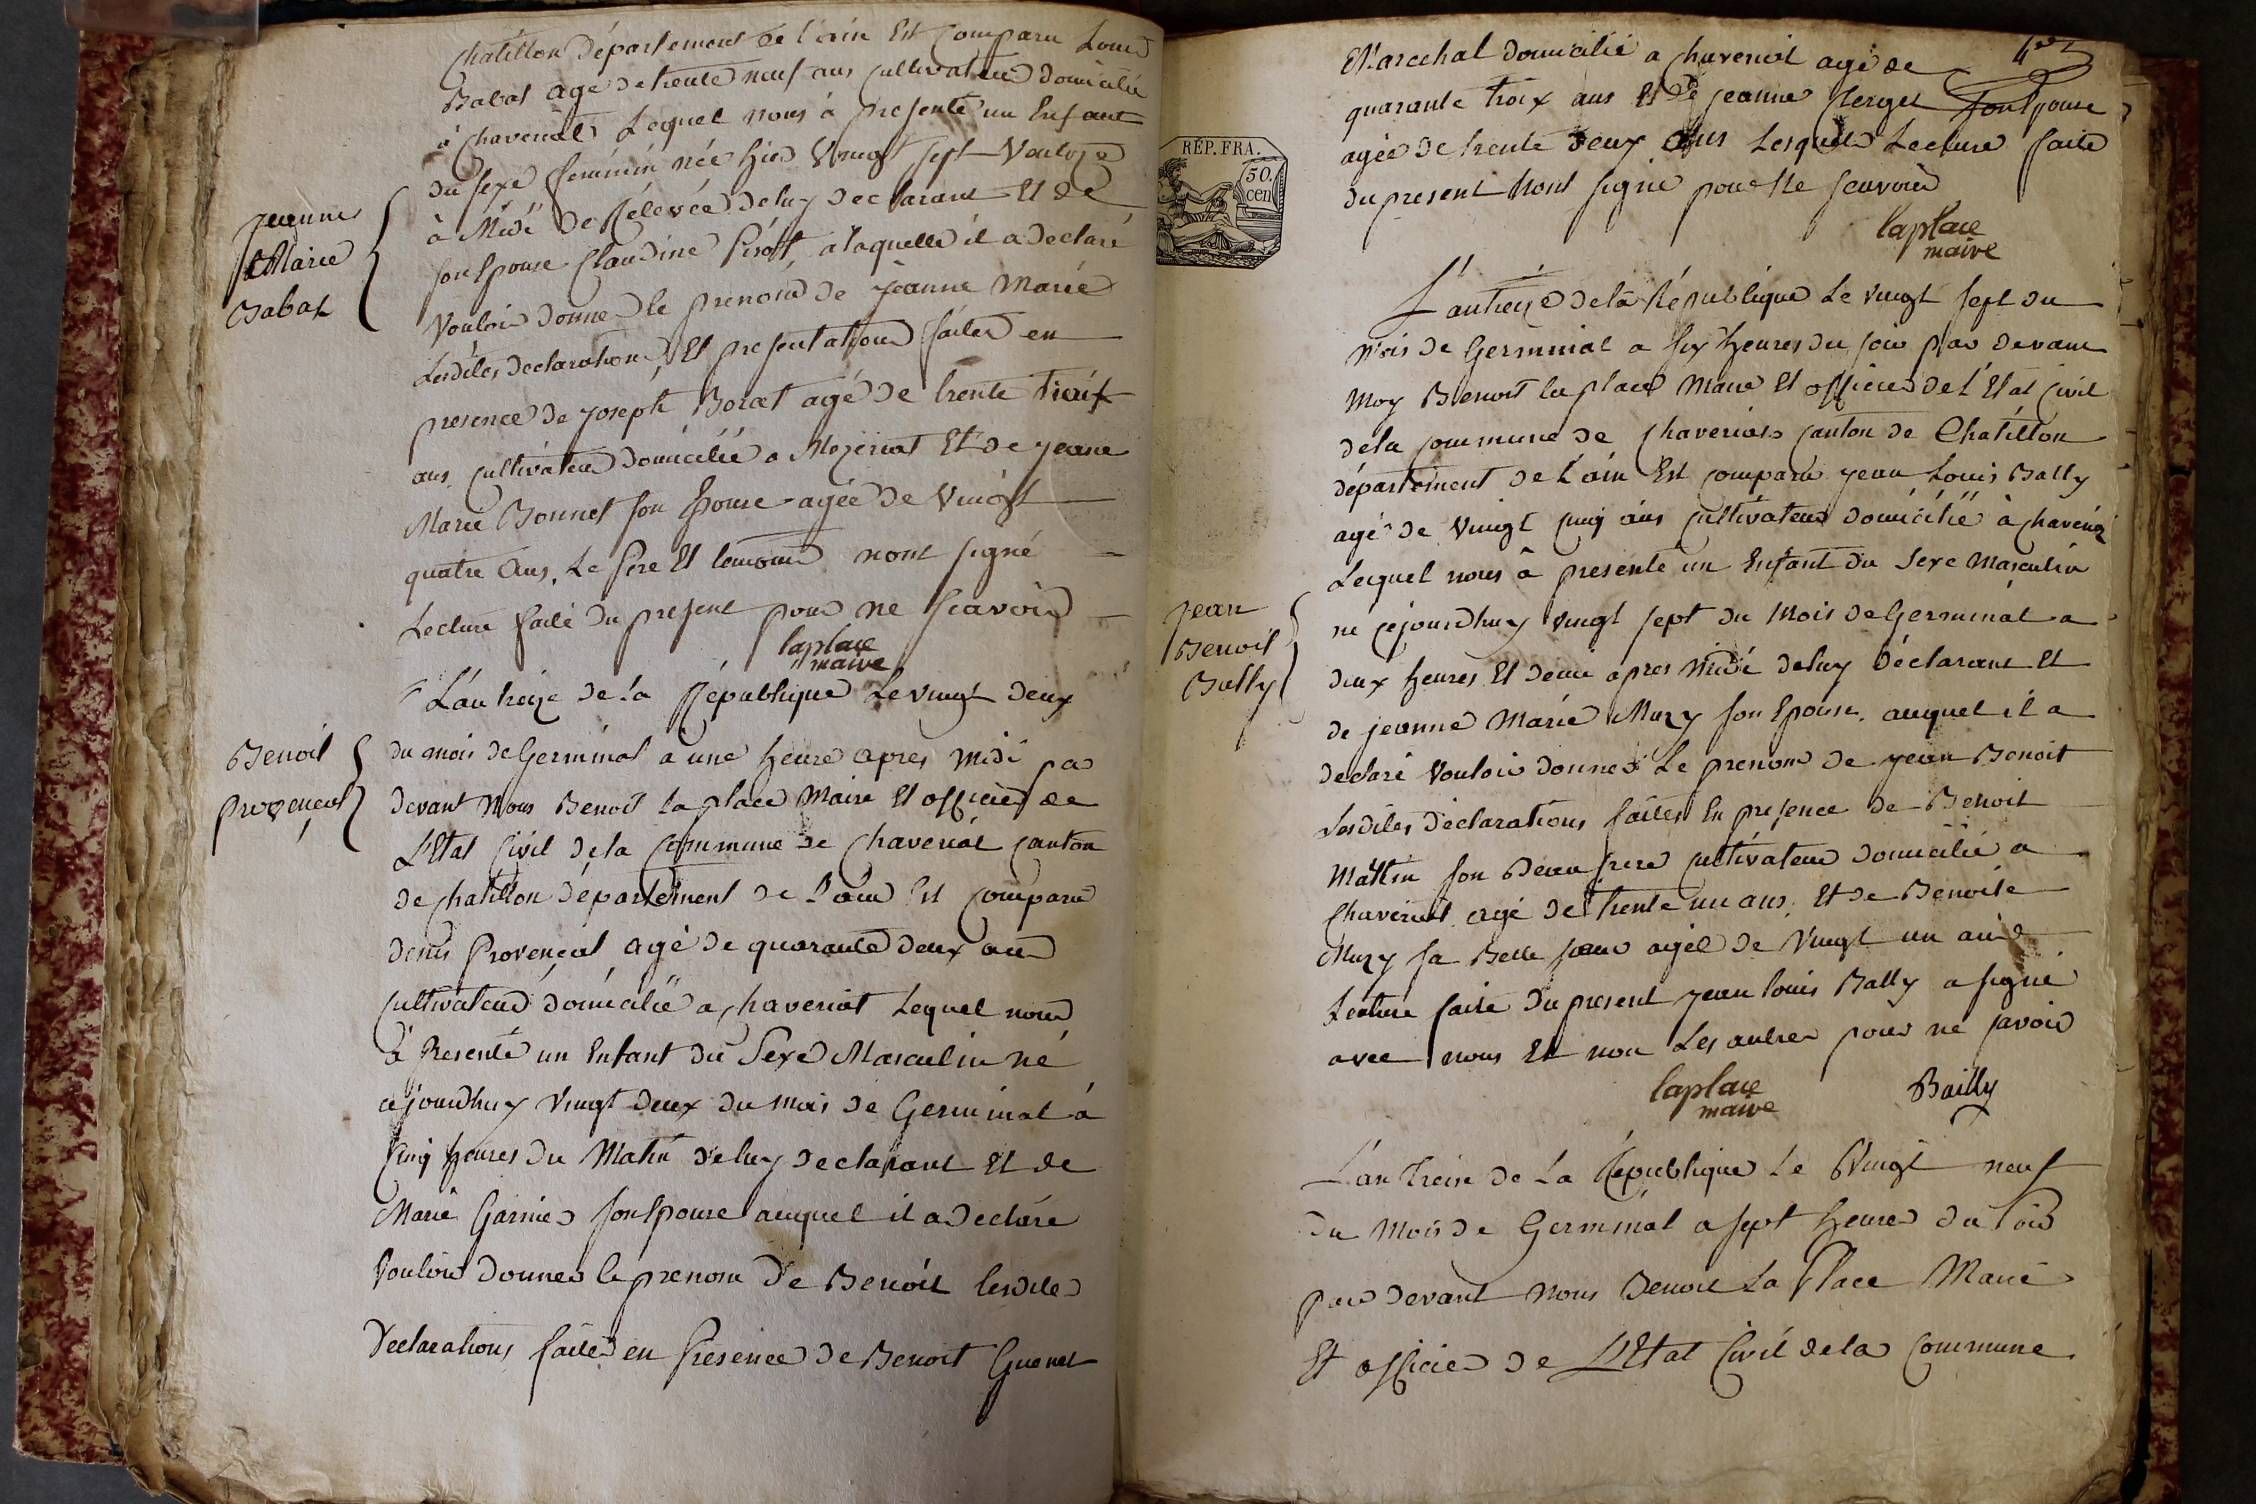 Chatillon Département de l'ain Est Comparu Louis
Babat agé de trente neuf ans Cultivateur domicilié
à Chaveriat Lequel nous à presenté un Enfant
du sexe feminin née hier Vingt sept Ventoze
à Midi de Rélévée de luy declarant Et de
son Epouse Claudine Pirot, a laquelle il a declaré
Vouloir donner le prenom de jeanne Marie
Lesdites declarations Et presentations faites en
presence de joseph Borat agé de trente troix
ans, Cultivateur domicilié a Mezeriat Et de jeane
Marie Bonnet son Epouse agée de Vingt
quatre ans, Le Pere Et temoins n'ont signé
Lecture faite du present pour ne scavoir
laplace
maire
jeanne
Marie
Babat
L'an treize de la République Le vingt deux
du mois de Germinal a une heure apres midi par
devant Nous Benoit la place Maire Et officier de
L'Etat Civil de la Commune de Chaveriat Canton
de Chatillon département de L'ain Est Comparu
denis Provençal agé de quarante deux ans
Cultivateur domicilié a Chaveriat Lequel nous
à Presenté un Enfant du Sexe Masculin né
cejourdhuy Vingt deux du mois de Germinal à
Cinq heures du Matin de luy declarant Et de
Marie Garnier son Epouse auquel il a declaré
Vouloir donner le prenom de Benoit lesdites
declarations faites en Présence de Benoit Guenet
Benoit
provençal
Marechal domicilié a Chaveriat agé de
quarante troix ans Et de jeanne son Epouse
agée de trente deux ans Lesquels Lecture faite
du present n'ont signé pour Ne scavoir
laplace
maire
RÉP. FRA.
50.
cen
L'an treize de la République Le vingt sept du
mois de Germinal a six heures du soir par devant
Moy Benoit la place Maire Et officier de L'Etat Civil
de la Commune de Chaveriat Canton de Chatillon
département de L'ain Est Comparu jean Louis Bally
agé de Vingt Cinq ans Cultivateur domicilié à Chaveriat
Lequel nous à presenté un Enfant du Sexe Masculin
né cejourdhuy vingt sept du Mois de Germinal a
deux heures Et demie apres Midi de luy déclarant Et
de jeanne Marie Mury son Epouse, auquel il a
declaré Vouloir donner Le prenom de jean Benoit
Lesdites déclarations faites En presence de Benoit
Mattin son Beau frere Cultivateur domicilié a
Chaveriat agé de trente un ans, Et de Benoite
Mury sa Belle soeur agée de Vingt un ans
Lecture faite du present jean louis Bally a signé
avec nous Et non Les autres pour ne savoir
laplace
maire
Bailly
jean
Benoit
Bally
L'an Treize de La République Le Vingt neuf
du Mois de Germinal a sept heures du soir
par devant nous Benoit La Place Maire
Et officier de L'Etat Civil de la Commune